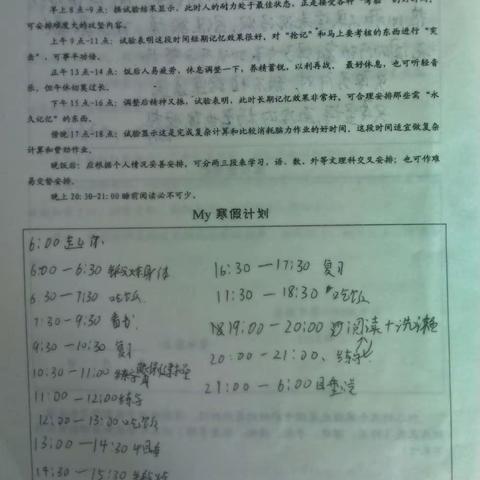 早上8点-9点：据试验结果显示，此时人的耐力处于最佳状态，正是接受各种“考验”的好时间，
可安排难度大的攻坚内容。
上午9点-11点：试验表明这段时间短期记忆效果很好，对“抢记”和马上要考核的东西进行“突
击”，可事半功倍。
正午13点-14点：饭后人易疲劳，休息调整一下，养精蓄锐，以利再战。最好休息，也可听轻音
乐，但午休切莫过长。
下午15点-16点：调整后精神又振，试验表明，此时长期记忆效果非常好，可合理安排那些需“永
久记忆”的东西。
傍晚17点-18点：试验显示这是完成复杂计算和比较消耗脑力作业的好时间，这段时间适宜做复杂
计算和费劲作业。
晚饭后：应根据个人情况妥善安排，可分两三段来学习，语、数、外等文理科交叉安排；也可作难
易交替安排。
晚上20:30-21:00睡前阅读必不可少。
My 寒假计划
6:00 起床
6:00 — 6:30 身体
6:30 — 7:30 吃饭
7:30 — 9:30 看书
9:30 — 10:30 复习
10:30 — 11:00 练字
11:00 — 12:00 练字
12:00 — 13:00 吃饭
13:00 — 14:30 午
14:30 — 15:30
16:30 — 17:30 复习
17:30 — 18:30 吃饭
19:00 — 20:00 阅读 + 洗澡
20:00 — 21:00、练字
21:00 — 6:00 睡觉